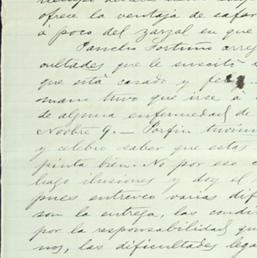 ofrece la ventaja de
á poco del zarzal en que
Pancho Fortuno
cultades que le suscitó
que está casado y
mano tuvo que irse á
de alguna enfermedad de
Noobre 9. — Por fin
y celebro saber que estas
pinta bien. — No por eso
hago ilusiones y doy el
pues entreveo varias
son la entrega, las
por la responsabilidad
nos, las dificultades